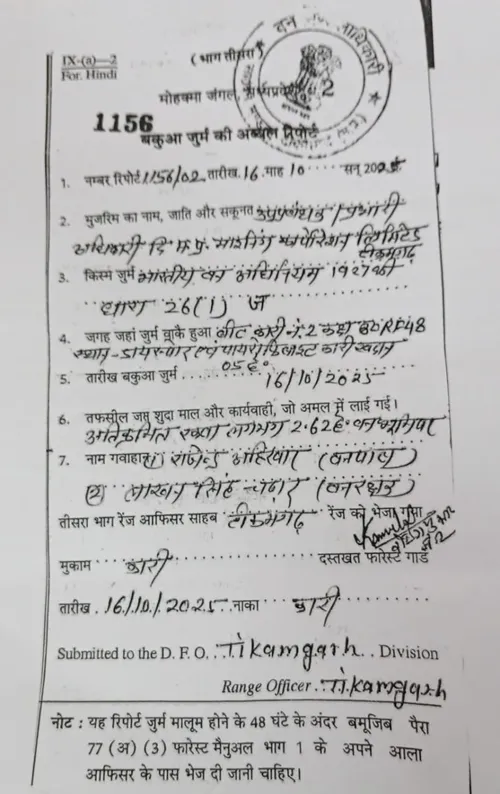 IX-(a)—2
For. Hindi
(भाग तीसरा)
मोहकमा जंगल, मध्यप्रदेश
1156
बकुआ जुर्म की अव्वल रिपोर्ट
1. नम्बर रिपोर्ट 1156/02 तारीख. 16. माह 10 सन् 2025
2. मुजरिम का नाम, जाति और सकूनत उपप्रबंधक/प्रभारी
अधिकारी दि म.प्र. माइनिंग कारपोरेशन लिमिटेड
टीकमगढ़
3. किस्म जुर्म भारतीय वन अधिनियम 1927 की
धारा 26(1) ज
4. जगह जहां जुर्म वाकै हुआ बीट कारी नं. 2 कक्ष
स्थान - डायस्पोर एवं पायरोफिलाइट कारी खदान
5. तारीख बकुआ जुर्म 16/10/2025
6. तफसील जप्त शुदा माल और कार्यवाही, जो अमल में लाई गई।
अतिक्रमित रकवा लगभग 2.62 हे. वनभूमि पर
7. नाम गवाहान (1) राजेन्द्र अहिरवार (वनपाल)
(2) लाखन सिंह (वनरक्षक)
तीसरा भाग रेंज आफिसर साहब टीकमगढ़ रेंज को भेजा गया
मुकाम कारी दस्तखत फारेस्ट गार्ड
तारीख . 16/10/2025 नाका कारी
Submitted to the D. F. O. Tikamgarh Division
Range Officer Tikamgarh
नोट : यह रिपोर्ट जुर्म मालूम होने के 48 घंटे के अंदर बमूजिब पैरा
77 (अ) (3) फारेस्ट मैनुअल भाग 1 के अपने आला
आफिसर के पास भेज दी जानी चाहिए।